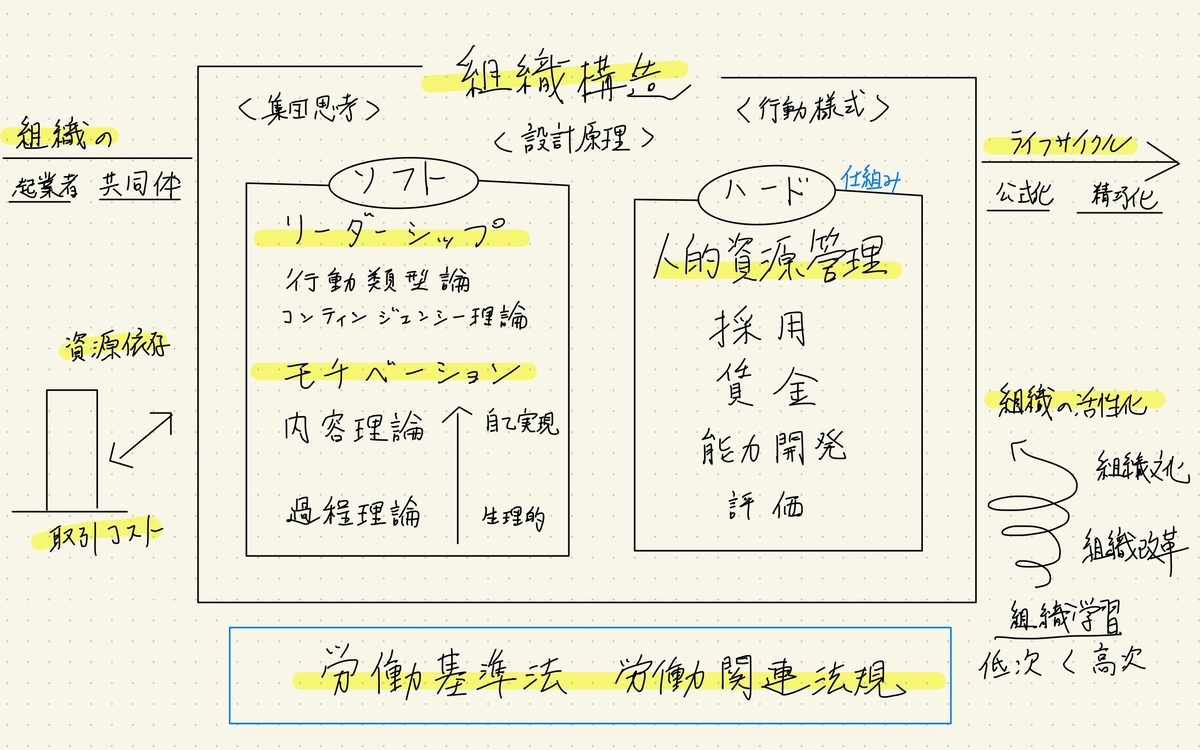 組織構造
〈集団思考〉
〈設計原理〉
〈行動様式〉
組織の
起業者 共同体
ライフサイクル
公式化 精巧化
ソフト
リーダーシップ
行動類型論
コンティンジェンシー理論
モチベーション
内容理論
自己実現
過程理論
生理的
ハード
仕組み
人的資源管理
採用
賃金
能力開発
評価
資源依存
取引コスト
組織の活性化
組織文化
組織改革
組織学習
低次く高次
労働基準法 労働関連法規